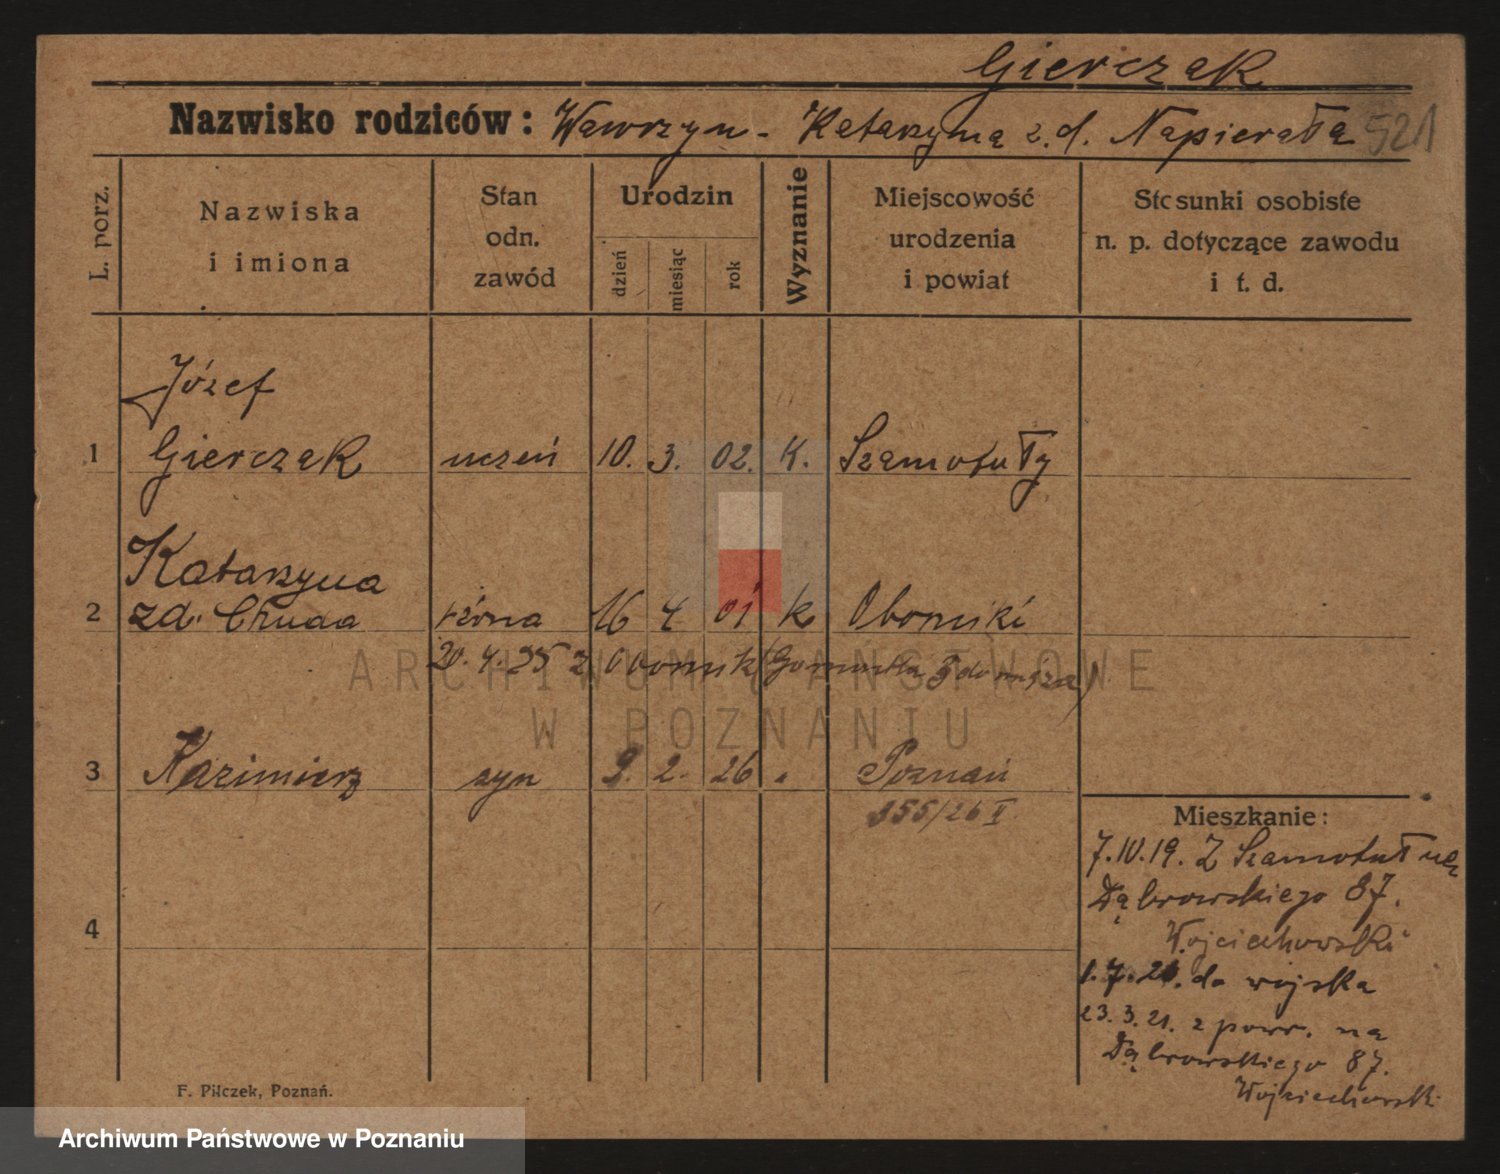 Gierczak
Nazwisko rodziców: Wawrzyn - Katarzyna z. d. Napierała 521
L. porz.
Nazwiska i imiona
Stan odn. zawód
Urodzin
dzień miesiąc rok
Wyznanie
Miejscowość urodzenia i powiat
Stosunki osobiste n. p. dotyczące zawodu i t. d.
Józef
1 Gierczak uczeń 10. 3. 02. K. Szamotuły
Katarzyna
2 zd. Chuda żona 16 4 01 k Oborniki
20. 4. 25 z Obornik
3 Kazimierz syn 9. 2. 26 . Poznań
355/26 I
4
Mieszkanie:
7.10.19. Z Szamotuł na
Dąbrowskiego 87.
Wojciechowski
1.7.21. do wojska
23.3.21. z powr. na
Dąbrowskiego 87.
Wojciechowski
F. Pilczek, Poznań.
ARCHIWUM PAŃSTWOWE
W POZNANIU
Archiwum Państwowe w Poznaniu